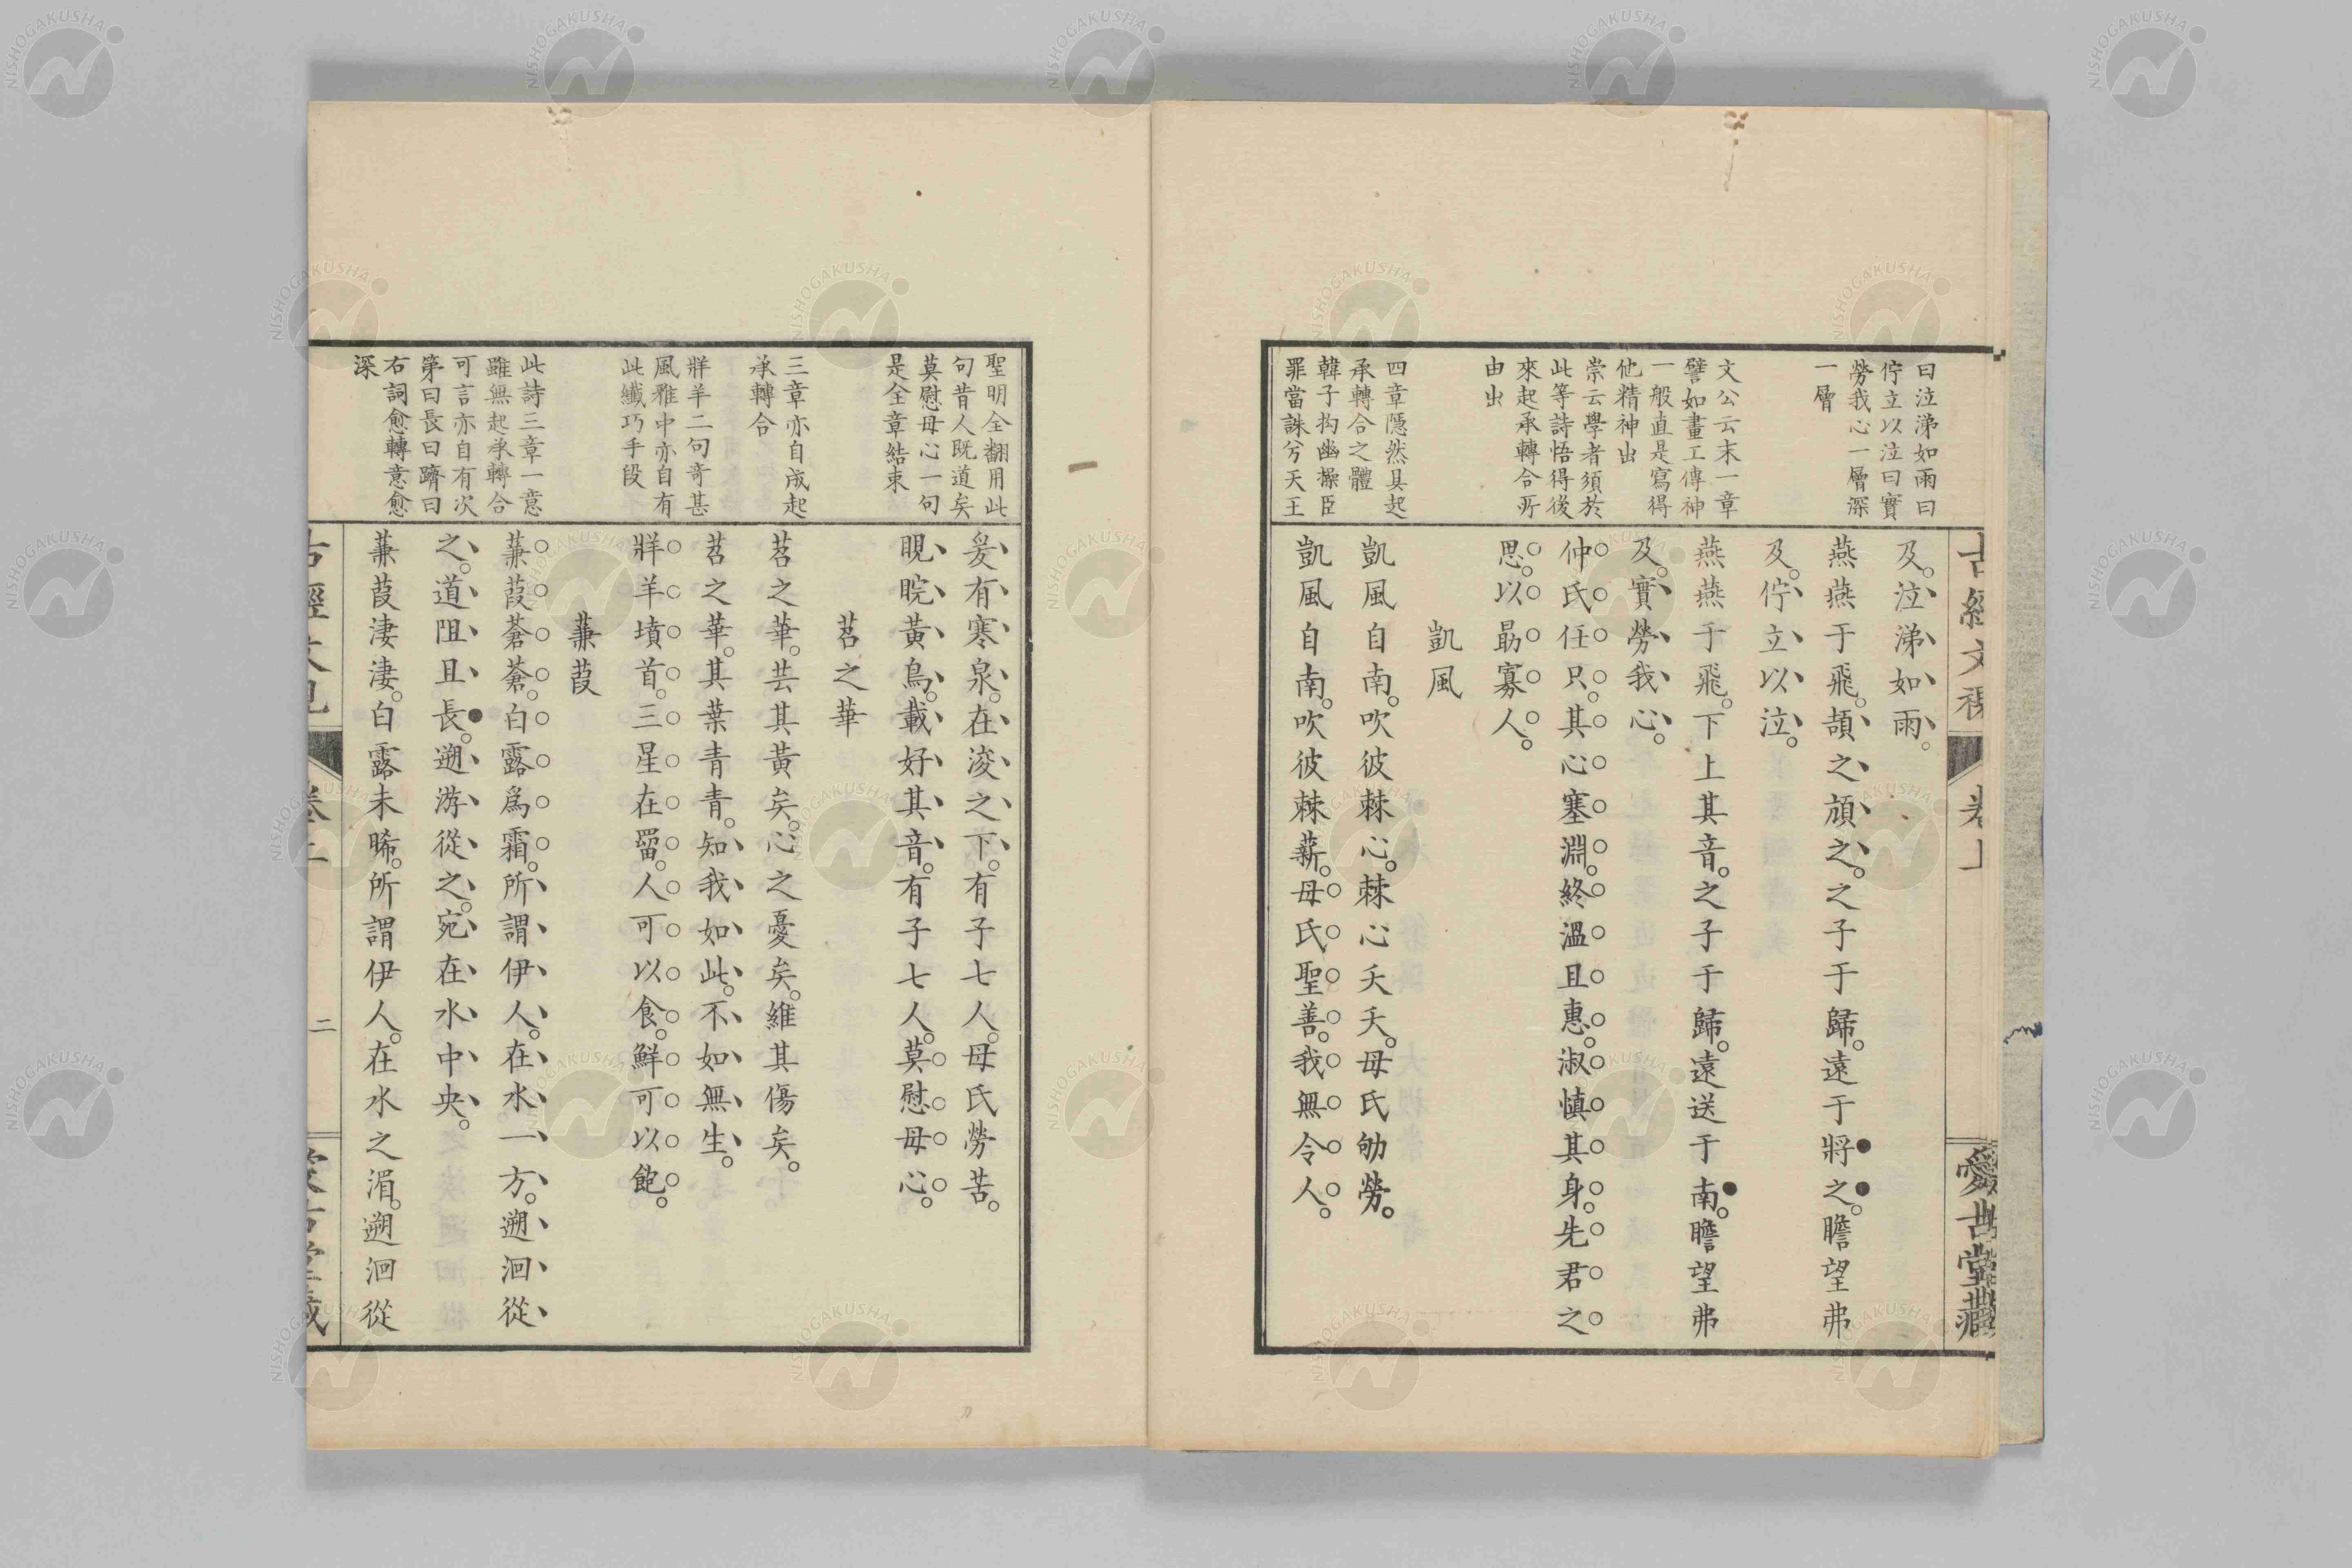 曰泣涕如雨曰
佇立以泣曰實
勞我心一層深
一層
文公云末一章
譬如畫工傳神
一般直是寫得
他精神出
崇云學者須於
此等詩悟得後
來起承轉合所
由出
四章隱然具起
承轉合之體
韓子拘幽操臣
罪當誅兮天王
愛古堂藏
及。泣涕如雨。
燕燕于飛。頡之頏之。之子于歸。遠于將之。瞻望弗
及。佇立以泣。
燕燕于飛。下上其音。之子于歸。遠送于南。瞻望弗
及。實勞我心。
仲氏任只。其心塞淵。終溫且惠。淑慎其身。先君之
思。以勗寡人。
凱風
凱風自南。吹彼棘心。棘心夭夭。母氏劬勞。
凱風自南。吹彼棘薪。母氏聖善。我無令人。
聖明全翻用此
句昔人既道矣
莫慰母心一句
是全章結束
三章亦自成起
承轉合
牂羊二句奇甚
風雅中亦自有
此纖巧手段
此詩三章一意
雖無起承轉合
可言亦自有次
第曰長曰躋曰
右詞愈轉意愈
深
爰有寒泉。在浚之下。有子七人。母氏勞苦。
睍睆黃鳥。載好其音。有子七人。莫慰母心。
苕之華
苕之華。芸其黃矣。心之憂矣。維其傷矣。
苕之華。其葉青青。知我如此。不如無生。
牂羊墳首。三星在罶。人可以食。鮮可以飽。
蒹葭
蒹葭蒼蒼。白露爲霜。所謂伊人。在水一方。遡洄從
之。道阻且長。遡游從之。宛在水中央。
蒹葭淒淒。白露未晞。所謂伊人。在水之湄。遡洄從
二
NISHOGAKUSHA